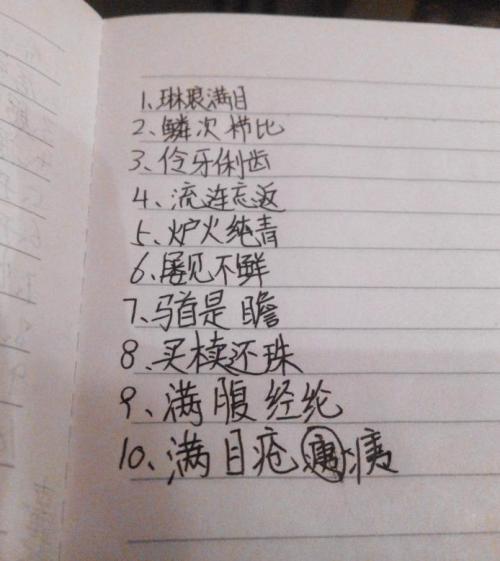 1、琳琅满目
2、鳞次栉比
3、伶牙俐齿
4、流连忘返
5、炉火纯青
6、屡见不鲜
7、马首是瞻
8、买椟还珠
9、满腹经纶
10、满目疮痍